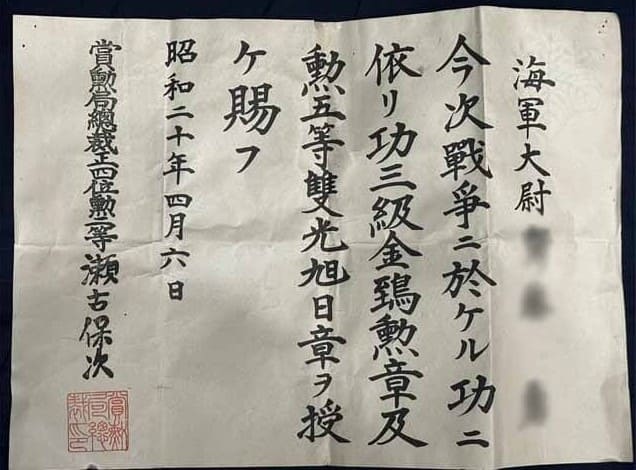 海軍大尉
今次戰爭ニ於ケル功ニ
依リ功三級金鵄勲章及
勲五等雙光旭日章ヲ授
ケ賜フ
昭和二十年四月六日
賞勲局總裁正四位勲二等瀬古保次
賞勲局總裁印